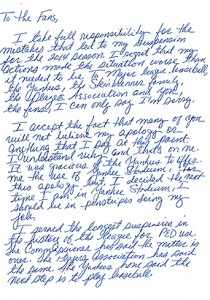 To the Fans,
I take full responsibility for the
mistakes that led to my suspension
for the 2014 season. I regret that my
actions made the situation worse than
it needed to be. To Major League Baseball,
the Yankees, the Steinbrenner family,
the Players Association and you,
the fans, I can only say I'm sorry.
I accept the fact that many of you
will not believe my apology or
anything that I say at this point.
I understand why and that's on me.
It was gracious of the Yankees to offer
me the use of Yankee Stadium, for
this apology but I decided the next
time I am in Yankee Stadium, I
should be in pinstripes doing my
job.
I served the longest suspension in
the history of the league for PED use.
The Commissioner has said the matter is
over. The Players Association has said
the same. The Yankees have said the
next step is to play baseball.